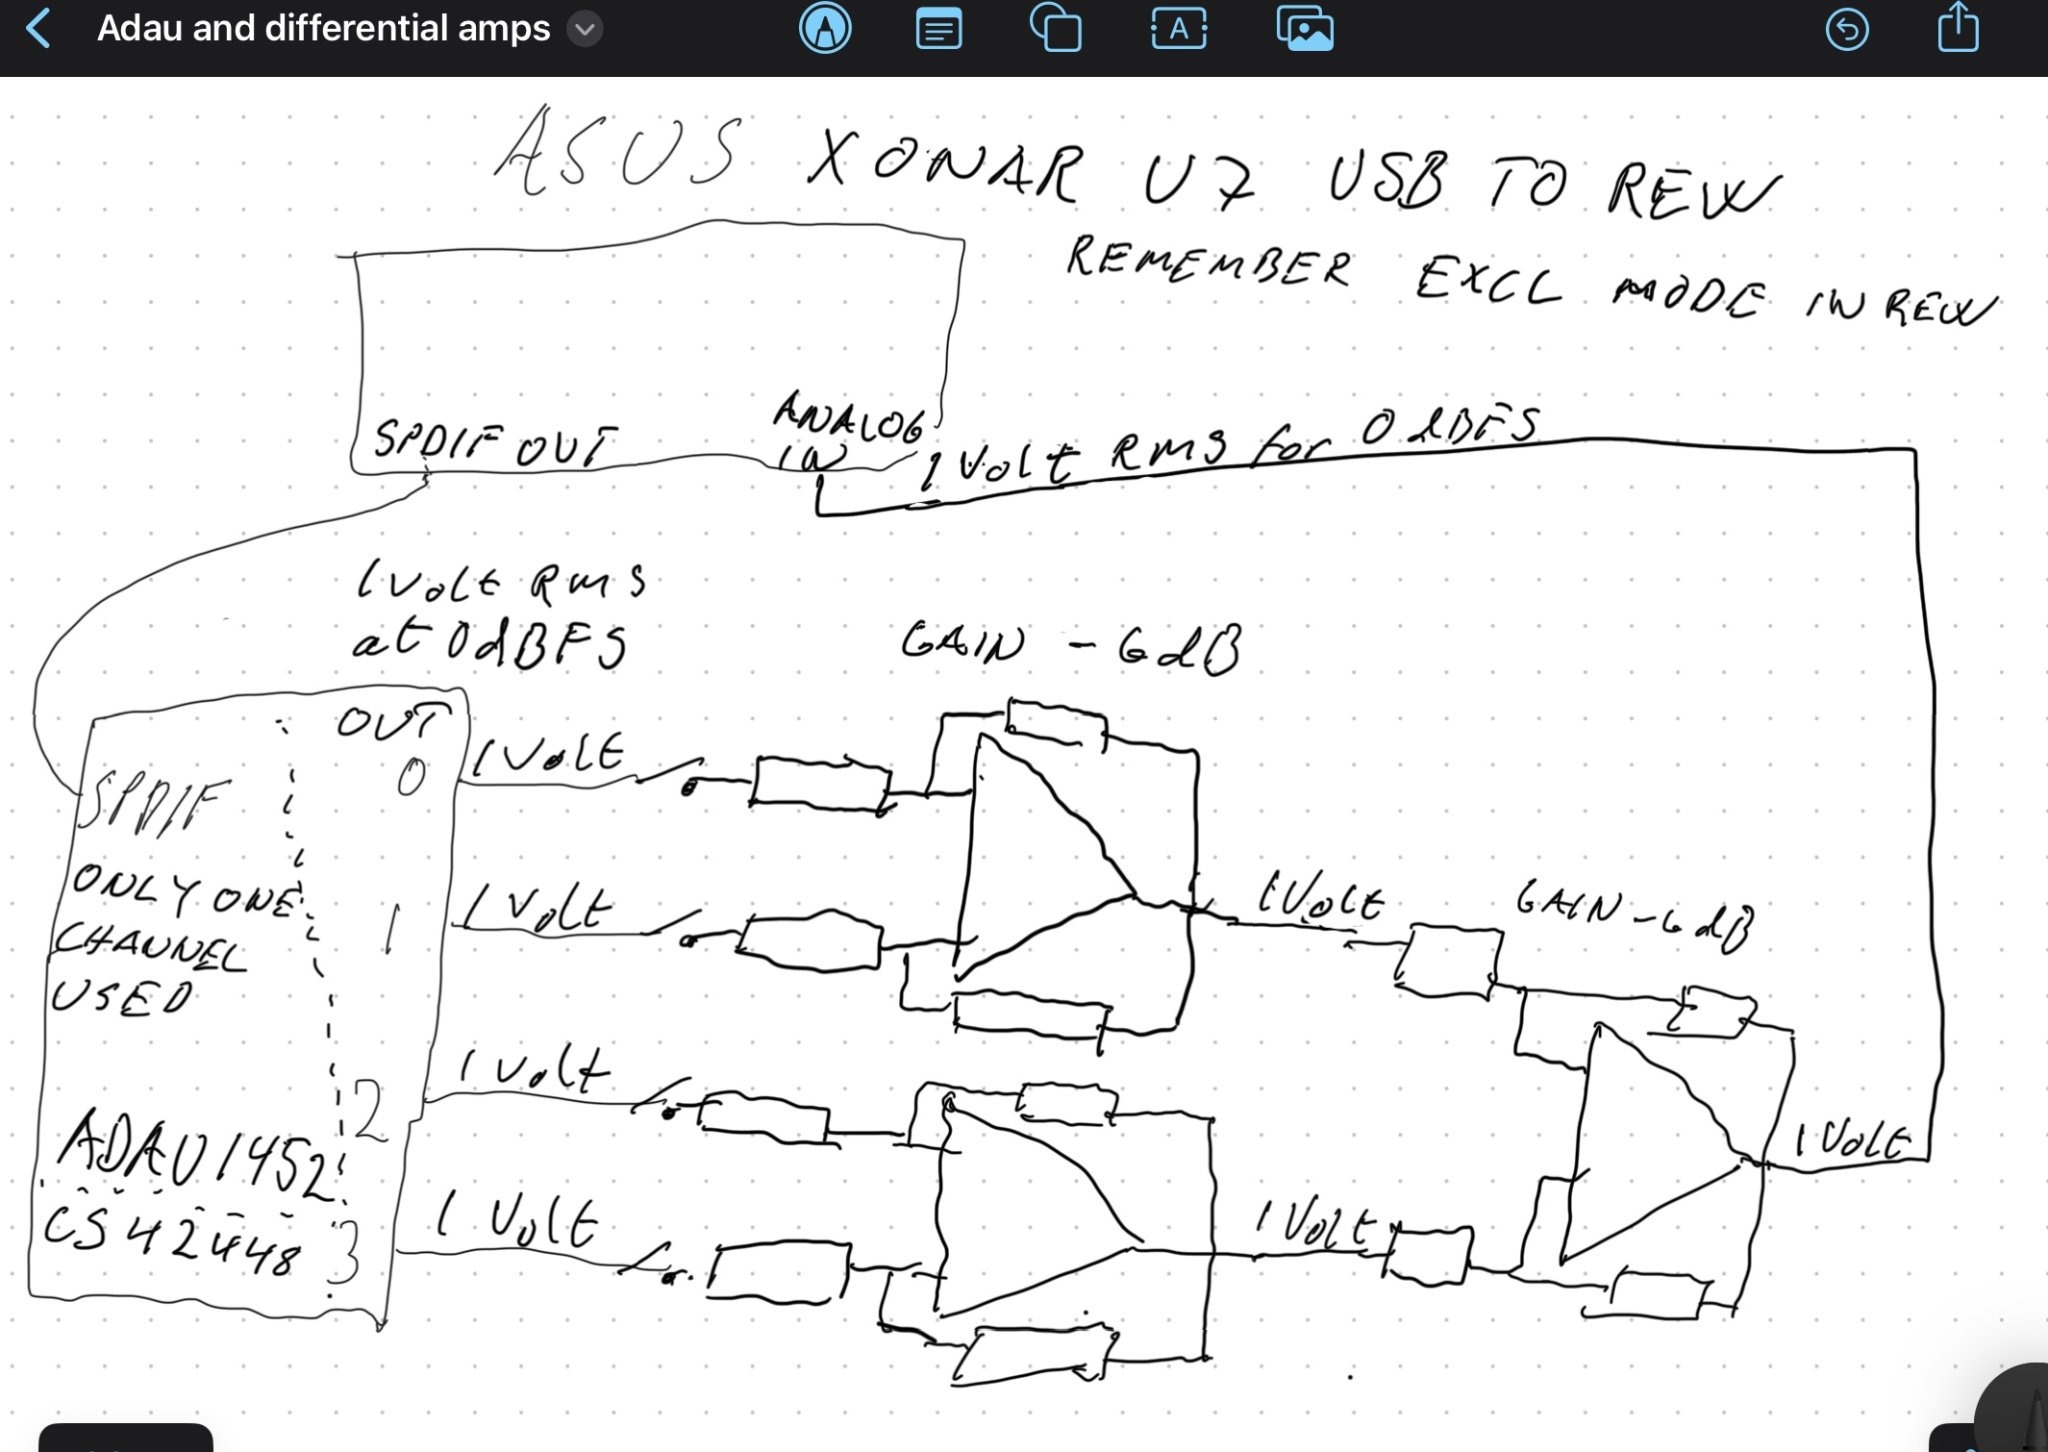 Adau and differential amps
A
ASUS XONAR U7 USB TO REW
REMEMBER EXCL MODE IN REW
SPDIF OUT
ANALOG
IN
1 Volt RMS for 0 dBFS
1 Volt Rms
at 0dBFS
GAIN - 6 dB
OUT
0
1 Volt
SPDIF
ONLY ONE
CHANNEL
USED
1
1 Volt
1 Volt
GAIN - 6 dB
2
1 Volt
ADAU1452
CS42448
3
1 Volt
1 Volt
1 Volt